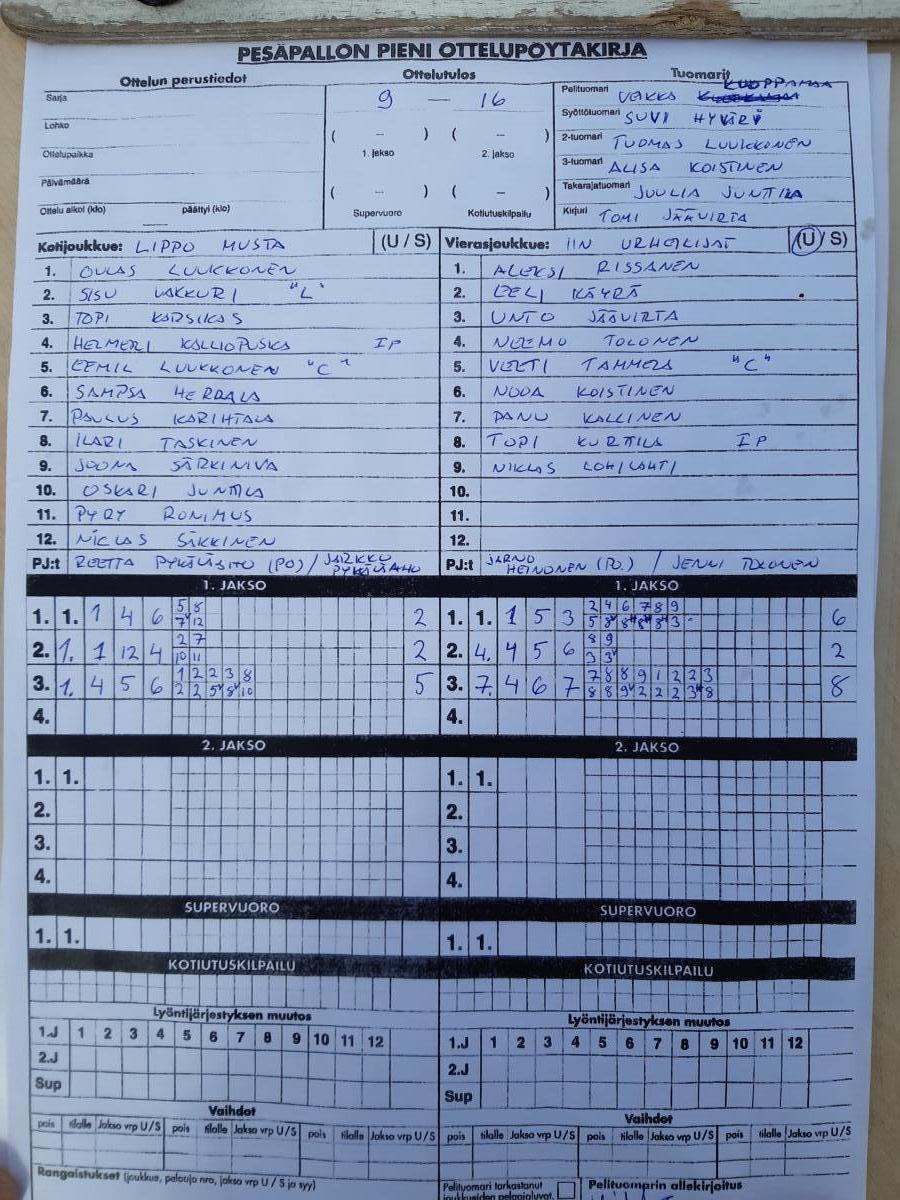 PESÄPALLON PIENI OTTELUPÖYTÄKIRJA
Ottelun perustiedot
Ottelutulos
Tuomarit
Sarja
Lohko
Ottelupaikka
Päivämäärä
Ottelu alkoi (klo) päättyi (klo)
9 — 16
( – ) ( – )
1. jakso 2. jakso
( – ) ( – )
Supervuoro Kotiutuskilpailu
KUOPPAMAA
Pelituomari VEIKKA
Syöttötuomari SUVI HYVÄRI
2-tuomari TUOMAS LUUKKONEN
3-tuomari ALISA KOISTINEN
Takarajatuomari JUULIA JUNTTILA
Kirjuri TOMI JÄÄVIRTA
Kotijoukkue: LIPPO MUSTA (U / S)
1. OULAS LUUKKONEN
2. SISU VAKKURI "L"
3. TOPI KARSIKAS
4. HELMERI KALLIOPUSKA IP
5. EEMIL LUUKKONEN "C"
6. SAMPSA HERRALA
7. PAULUS KARIHTALA
8. ILARI TASKINEN
9. JOONA SÄRKINIVA
10. OSKARI JUNTTILA
11. PYRY RONIMUS
12. NICLAS SÄKKINEN
PJ:t REETTA PYKÄLISTÖ (PO) / JARKKO
Vierasjoukkue: IIN URHEILIJAT (U / S)
1. ALEKSI RISSANEN
2. EELI KÄYRÄ
3. UNTO JÄÄVIRTA
4. NEEMO TOLONEN
5. VERTI TAMMELA "C"
6. NOOA KOISTINEN
7. PANU KALLINEN
8. TOPI KURTTILA IP
9. NIKLAS LOHILAHTI
10.
11.
12.
PJ:t JARNO HEINONEN (PO.) / JENNI TOLONEN
1. JAKSO
1. 1. 1 4 6 5 8 2
7 12
2. 1. 1 12 4 2 7 2
10 11
3. 1. 4 5 6 1 2 2 3 8 5
2 2 5 8 10
4.
1. JAKSO
1. 1. 1 5 3 2 4 6 7 8 9 6
5 8 8 8 8 3
2. 4. 4 5 6 8 9 2
3 3
3. 7. 4 6 7 7 8 8 9 1 2 2 3 8
8 8 9 2 2 2 3 8
4.
2. JAKSO
1. 1.
2.
3.
4.
2. JAKSO
1. 1.
2.
3.
4.
SUPERVUORO
1. 1.
SUPERVUORO
1. 1.
KOTIUTUSKILPAILU
KOTIUTUSKILPAILU
Lyöntijärjestyksen muutos
1.J 1 2 3 4 5 6 7 8 9 10 11 12
2.J
Sup
Lyöntijärjestyksen muutos
1.J 1 2 3 4 5 6 7 8 9 10 11 12
2.J
Sup
Vaihdot
pois tilalle Jakso vrp U/S pois tilalle Jakso vrp U/S pois tilalle Jakso vrp U/S
Vaihdot
pois tilalle Jakso vrp U/S pois tilalle Jakso vrp U/S pois tilalle Jakso vrp U/S
Rangaistukset (joukkue, pelaaja nro, jakso vrp U / S ja syy)
Pelituomari tarkastanut
joukkueiden pelaajaluvat.
Pelituomarin allekirjoitus